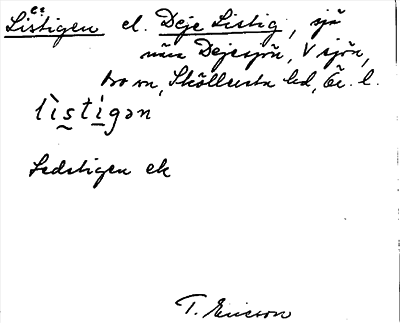 Listigen el. Deje Listig, sjö
nära Dejesjön, V sjön,
sn, Sköllersta hd, Ör. l.
lìstigən
Ledstigen ek
T. Ericson